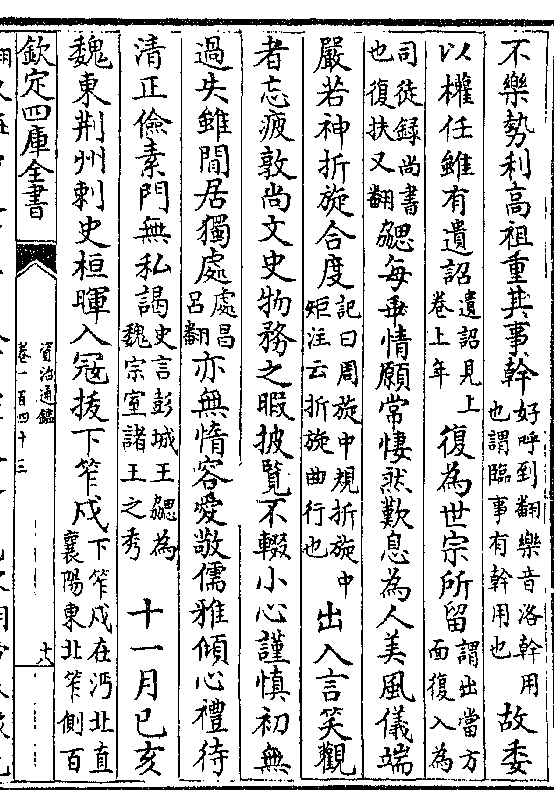 不樂勢利高祖重其事幹好呼到翻樂音洛幹用也謂臨事有幹用也故委
以權任雖有遺詔遺詔見上卷上年復為世宗所留謂出當方面復入為
司徒録尚書也復扶又翻勰每乖情願常悽然歎息為人美風儀端
嚴若神折旋合度記曰周旋中規折旋中矩注云折旋曲行也出入言笑觀
者忘疲敦尚文史物務之暇披覽不輟小心謹慎初無
過失雖閒居獨處處昌吕翻亦無惰容愛敬儒雅傾心禮待
清正儉素門無私謁史言彭城王勰為魏宗室諸王之秀十一月已亥
魏東荆州刺史桓暉入冦拔下笮戍下笮戍在沔北直襄陽東北笮側百
欽定四庫全書
資治通鑑
卷一百四十三
十八